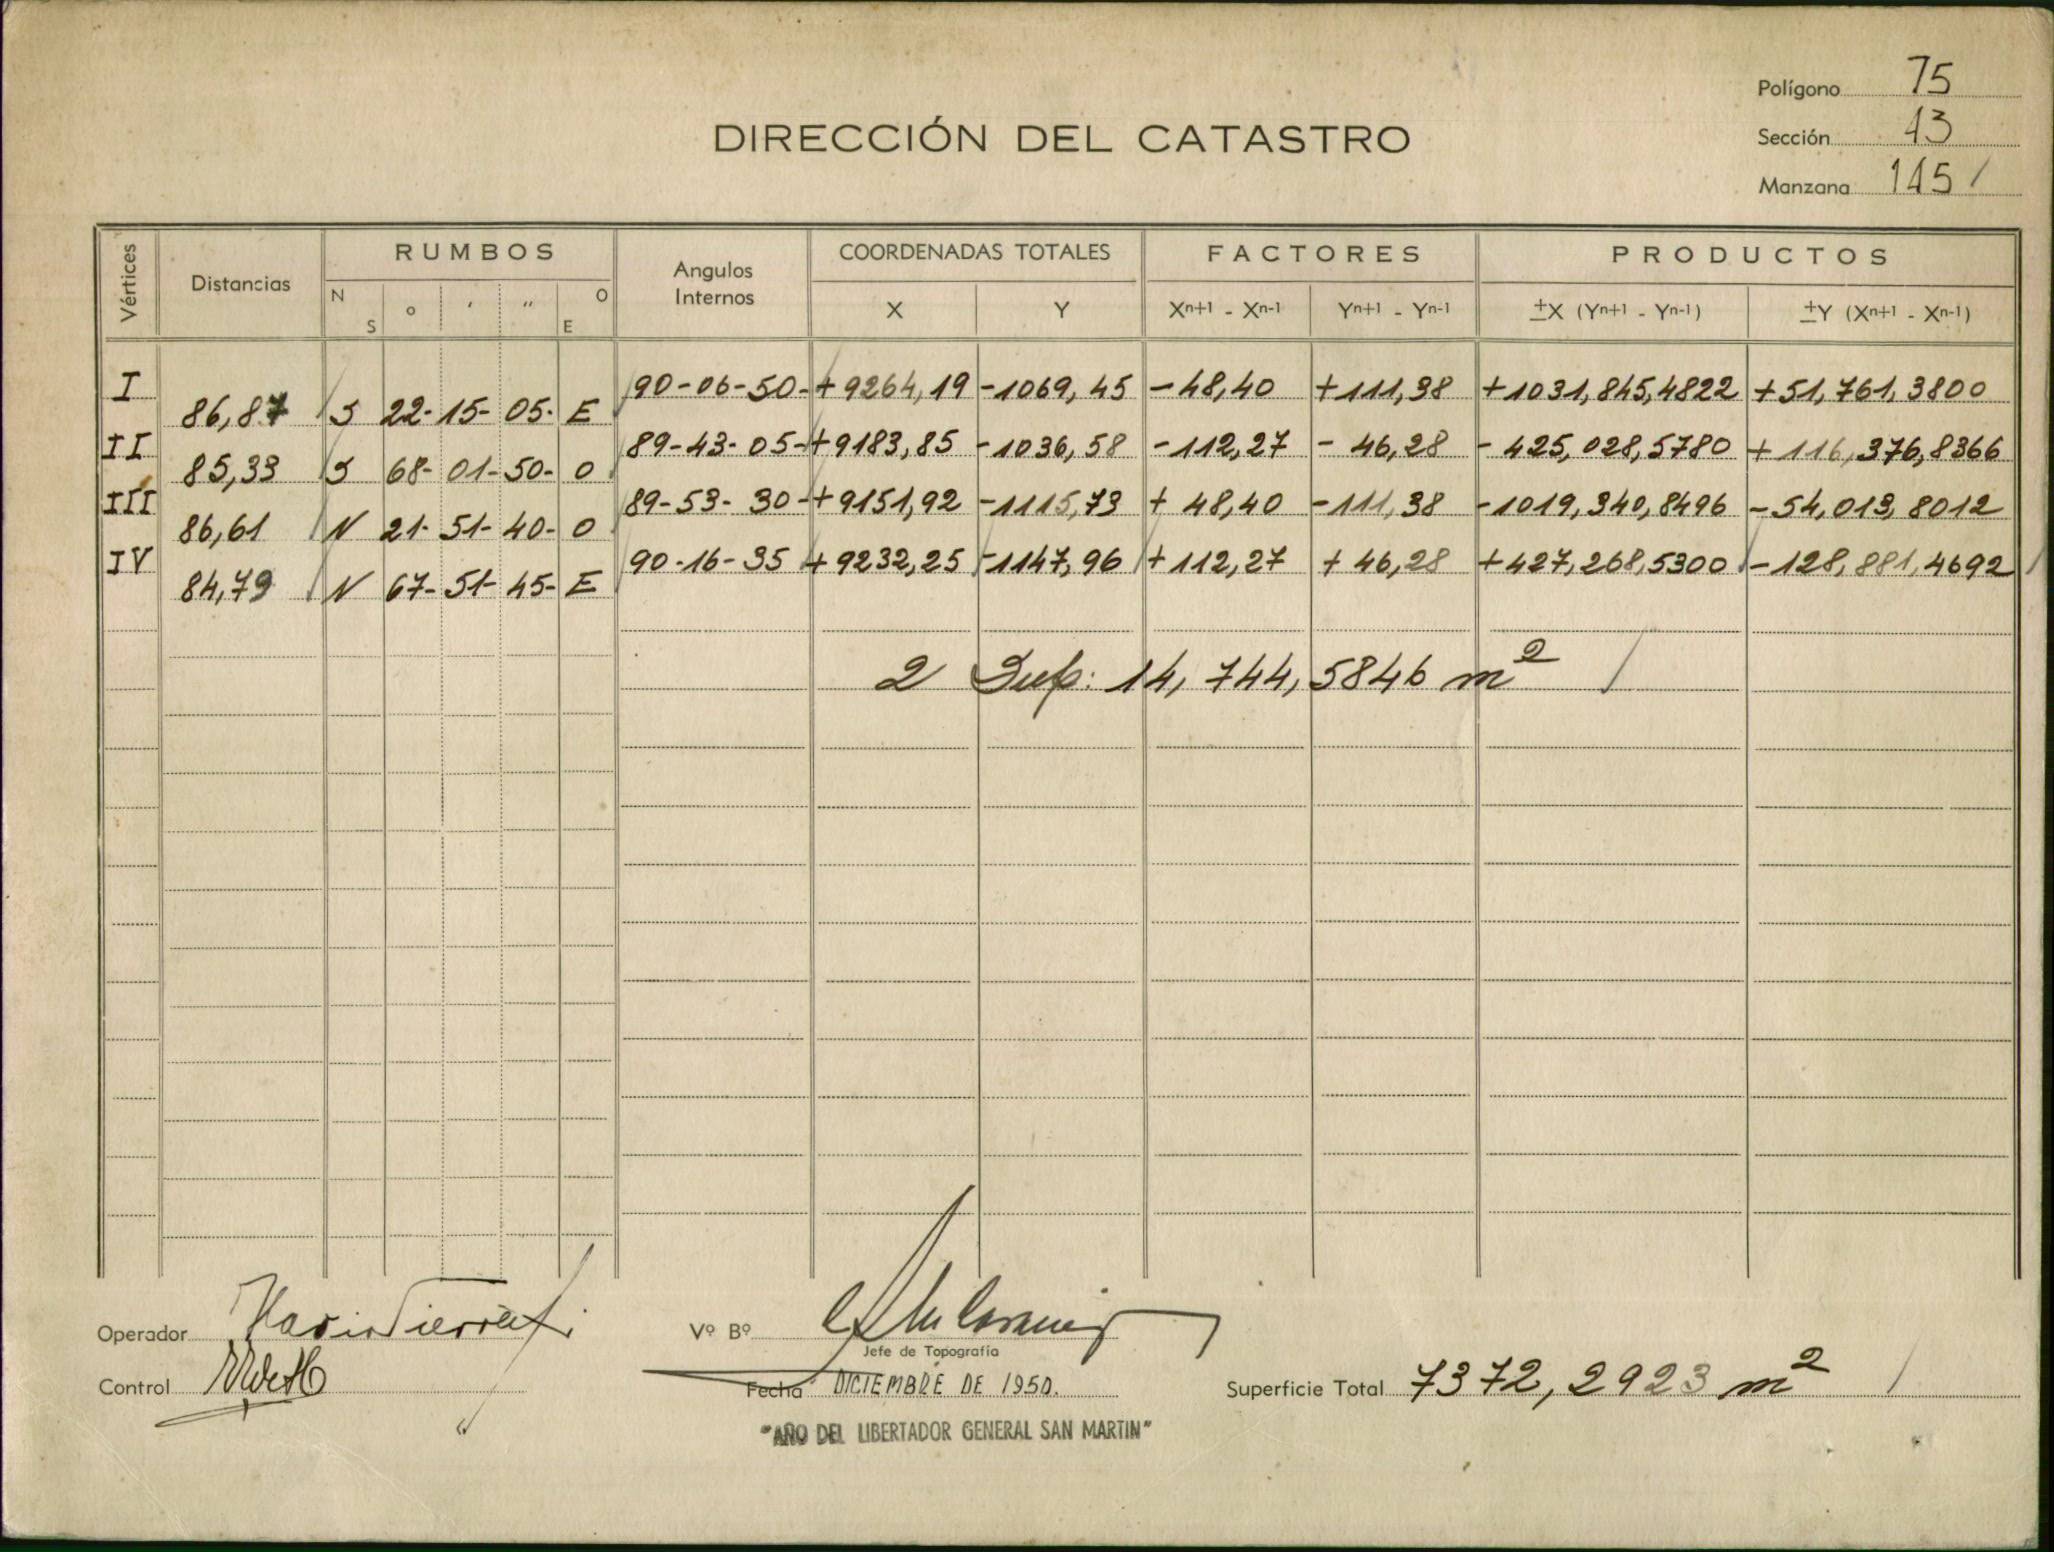 Polígono 75
DIRECCIÓN DEL CATASTRO
Sección 13
Manzana 145 /
Vértices Distancias RUMBOS Angulos Internos COORDENADAS TOTALES FACTORES PRODUCTOS
N S ° ' " O E X Y Xn+1 - Xn-1 Yn+1 - Yn-1 ±X (Yn+1 - Yn-1) ±Y (Xn+1 - Xn-1)
I 90-06-50- +9264,19 -1069,45 -48,40 +111,38 +1031,845,4822 +51,761,3800
86,87 S 22-15-05- E
II 89-43-05- +9183,85 -1036,58 -112,27 -46,28 -425,028,5780 +116,376,8366
85,33 S 68-01-50- O
III 89-53-30- +9151,92 -1115,73 +48,40 -111,38 -1019,340,8496 -54,013,8012
86,61 N 21-51-40- O
IV 90-16-35 +9232,25 -1147,96 +112,27 +46,28 +427,268,5300 -128,881,4692
84,79 N 67-51-45- E
2 Sup: 14,744,5846 m2 /
Operador
Vº Bº
Jefe de Topografía
Control
Fecha DICIEMBRE DE 1950.
Superficie Total 7372,2923 m2 /
"AÑO DEL LIBERTADOR GENERAL SAN MARTIN"